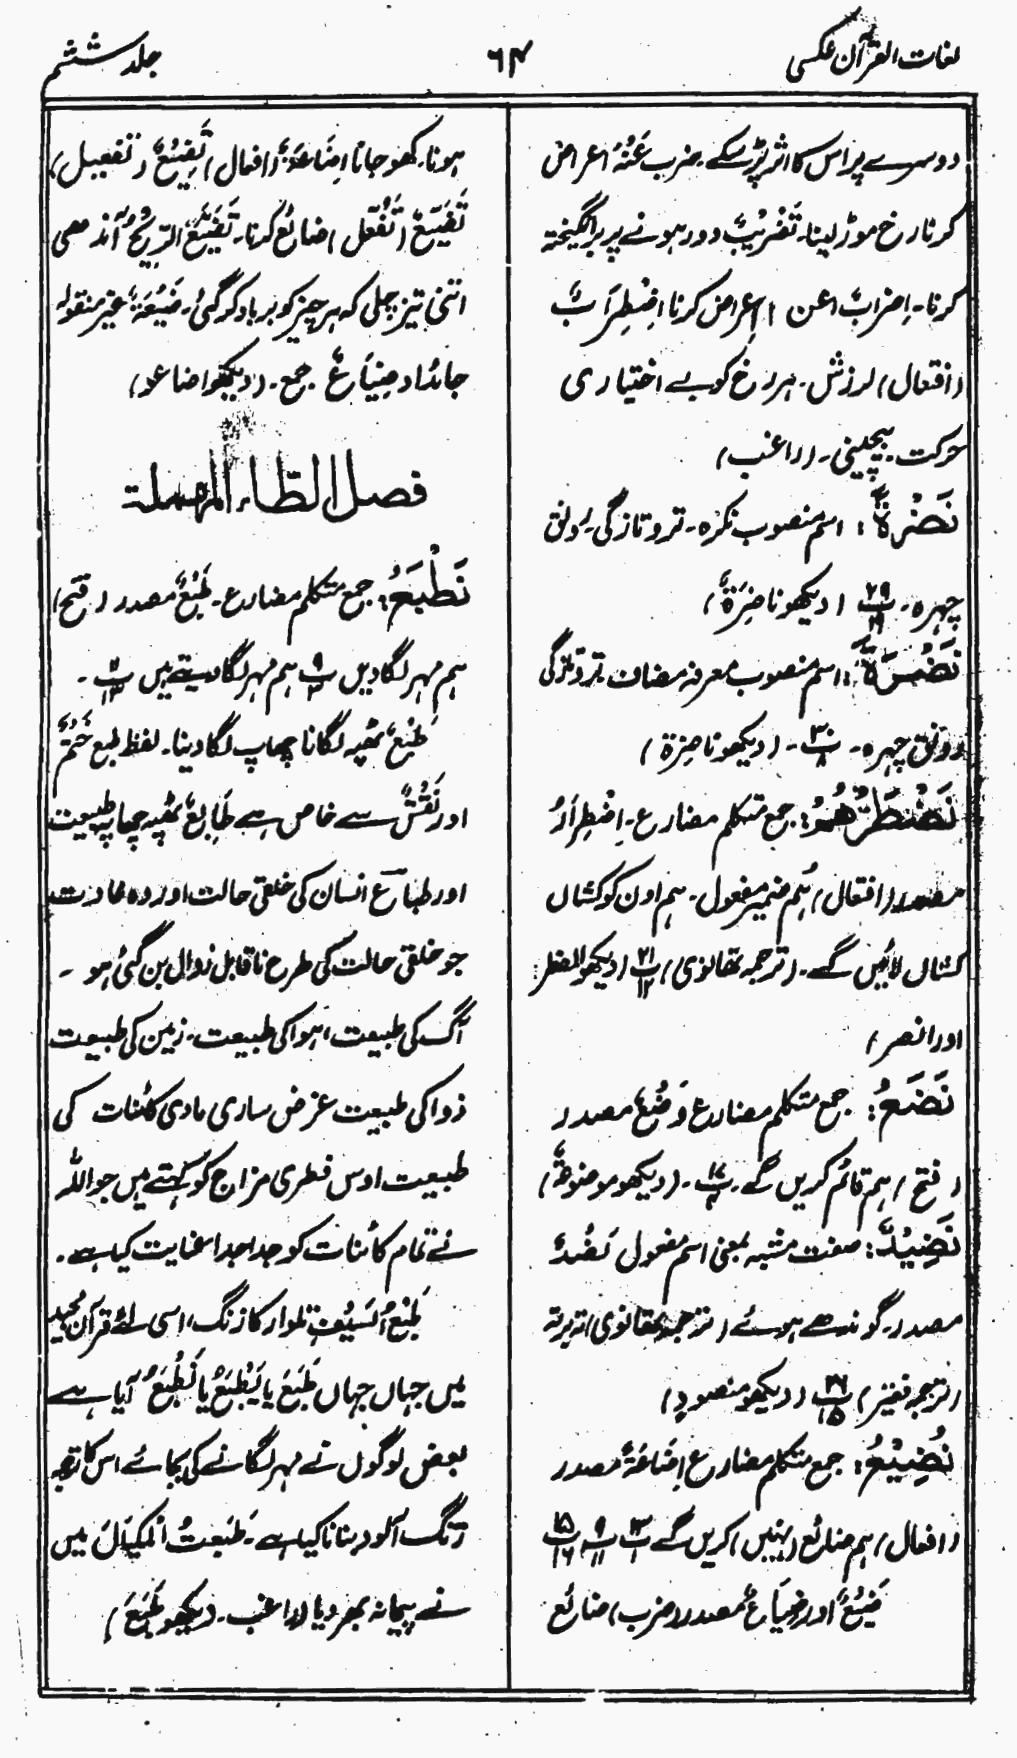 لغات القرآن عکسی
۶۴
جلد ششم
دوسرے پر اس کا اثر پڑ سکے۔ ضرب عَنْہُ اعراض
کرنا رخ موڑ لینا۔ تَضْرِیْبٌ دور ہونے پر برانگیختہ
کرنا۔ اِضرابٌ (عن) اِعراض کرنا اِضْطِرَابٌ
(افتعال) لرزش۔ ہر رخ کو بے اختیاری
حرکت۔ بیچینی۔ (راغب)
نَضْرَۃً : اسم منصوب نکرہ۔ تروتازگی۔ رونق
چہرہ۔ ۲۹/۱۹ (دیکھو ناضِرَۃٌ)
نَضْرَۃَ : اسم منصوب معرفہ مضاف تروتازگی
رونق چہرہ۔ ۳۰/۸۔ (دیکھو ناضرۃ)
نَضْطَرُّهُمْ : جمع متکلم مضارع۔ اِضْطِرَارٌ
مصدر (افتعال) ہُم ضمیر مفعول۔ ہم اون کو کشاں
کشاں لائیں گے۔ (ترجمہ تھانوی) ۲۱/۱۲ (دیکھو المضطر
اور انصر)
نَضَعُ : جمع متکلم مضارع وَضْعٌ مصدر
(فتح) ہم قائم کریں گے۔ ۱۷/۴۔ (دیکھو موضوعۃ)
نَضِیْدٌ : صفت مشبہ بمعنی اسم مفعول نَضْدٌ
مصدر۔ گوندھے ہوئے (ترجمہ تھانوی) تہ برتہ
(ترجمہ فقیر) ۲۶/۱۵ (دیکھو منضود)
نُضِیْعُ : جمع متکلم مضارع اِضَاعَۃٌ مصدر
(افعال) ہم ضائع (نہیں) کریں گے ۱۳/۱ ۹/۱۱ ۱۵/۱۶
ضَیْعٌ اور ضِیَاعٌ مصدر (ضرب) ضائع
ہونا۔ کھو جانا اِضَاعَۃٌ (افعال) تَضْیِیْعٌ (تفعیل)
تَضَیُّعٌ (تَفَعُّل) ضائع کرنا۔ تَضَیَّعَ الرِّیْحُ آندھی
اتنی تیز چلی کہ ہر چیز کو برباد کر گئی۔ ضَیْعَۃٌ غیر منقولہ
جائداد ضِیَاعٌ جمع۔ (دیکھو اضاعو)
فصل الطاء المہملۃ
نَطْبَعُ : جمع متکلم مضارع۔ طَبْعٌ مصدر (فتح)
ہم مہر لگا دیں ۹/۲ ہم مہر لگا دیتے ہیں ۱۱/۱۳۔
طَبْعٌ ٹھپہ لگانا چھاپ لگا دینا۔ لفظ طبع خَتْمٌ
اور نَقْشٌ سے خاص ہے طَابِعٌ ٹھپہ چھاپ طبیعت
اور طباع انسان کی خلقی حالت اور وہ عادت
جو خلقی حالت کی طرح ناقابل زوال بن گئی ہو ۔
آگ کی طبیعت، ہوا کی طبیعت۔ زمین کی طبیعت
دوا کی طبیعت غرض ساری مادی کائنات کی
طبیعت اوس فطری مزاج کو کہتے ہیں جو اللہ
نے تمام کائنات کو جدا جدا عنایت کیا ہے۔
طَبْعُ السَّیْفِ تلوار کا زنگ، اسی لئے قرآن مجید
میں جہاں جہاں طَبَعَ یا یَطْبَعُ یا نَطْبَعُ آیا ہے
بعض لوگوں نے مہر لگانے کی بجائے اس کا ترجمہ
زنگ آلود بنانا کیا ہے۔ طَبَعتُ المِکْیَالَ میں
نے پیمانہ بھر دیا (راغب۔ دیکھو طَبَعَ)